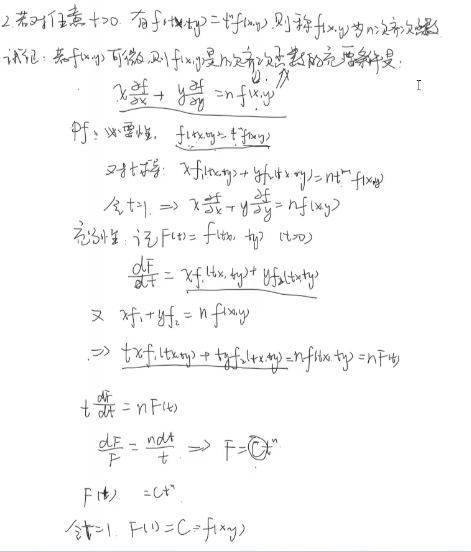 2.若对任意t>0.有f(tx,ty)=tⁿf(x,y),则称f(x,y)为n次齐次函数
试证:若f(x,y)可微,则f(x,y)是n次齐次函数的充要条件是:
x∂f/∂x + y∂f/∂y = nf(x,y)
Pf:必要性, f(tx,ty)=tⁿf(x,y)
对t求导: xf₁(tx,ty)+yf₂(tx,ty)=ntⁿ⁻¹f(x,y)
令t=1. ⇒ x∂f/∂x+y∂f/∂y=nf(x,y)
充分性:记F(t)=f(tx,ty) (t>0)
dF/dt = xf₁(tx,ty)+yf₂(tx,ty)
又 xf₁+yf₂=nf(x,y)
⇒ txf₁(tx,ty)+tyf₂(tx,ty)=nf(tx,ty)=nF(t)
t dF/dt = nF(t)
dF/F = ndt/t ⇒ F=Ctⁿ
F(t) =Ctⁿ
令t=1. F(1)=C=f(x,y)